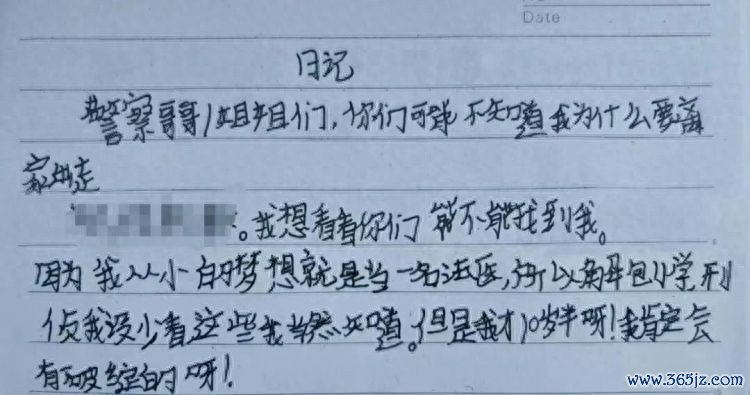 Date
日记
警察哥哥/姐姐们,你们可能不知道我为什么要离
家出走
。我想看看你们能不能找到我。
因为我从小的梦想就是当一名法医,所以解剖学,刑
侦我没少看这些我当然知道。但是我才10岁半呀!我肯定会
有破绽的呀!
www.365jz.com